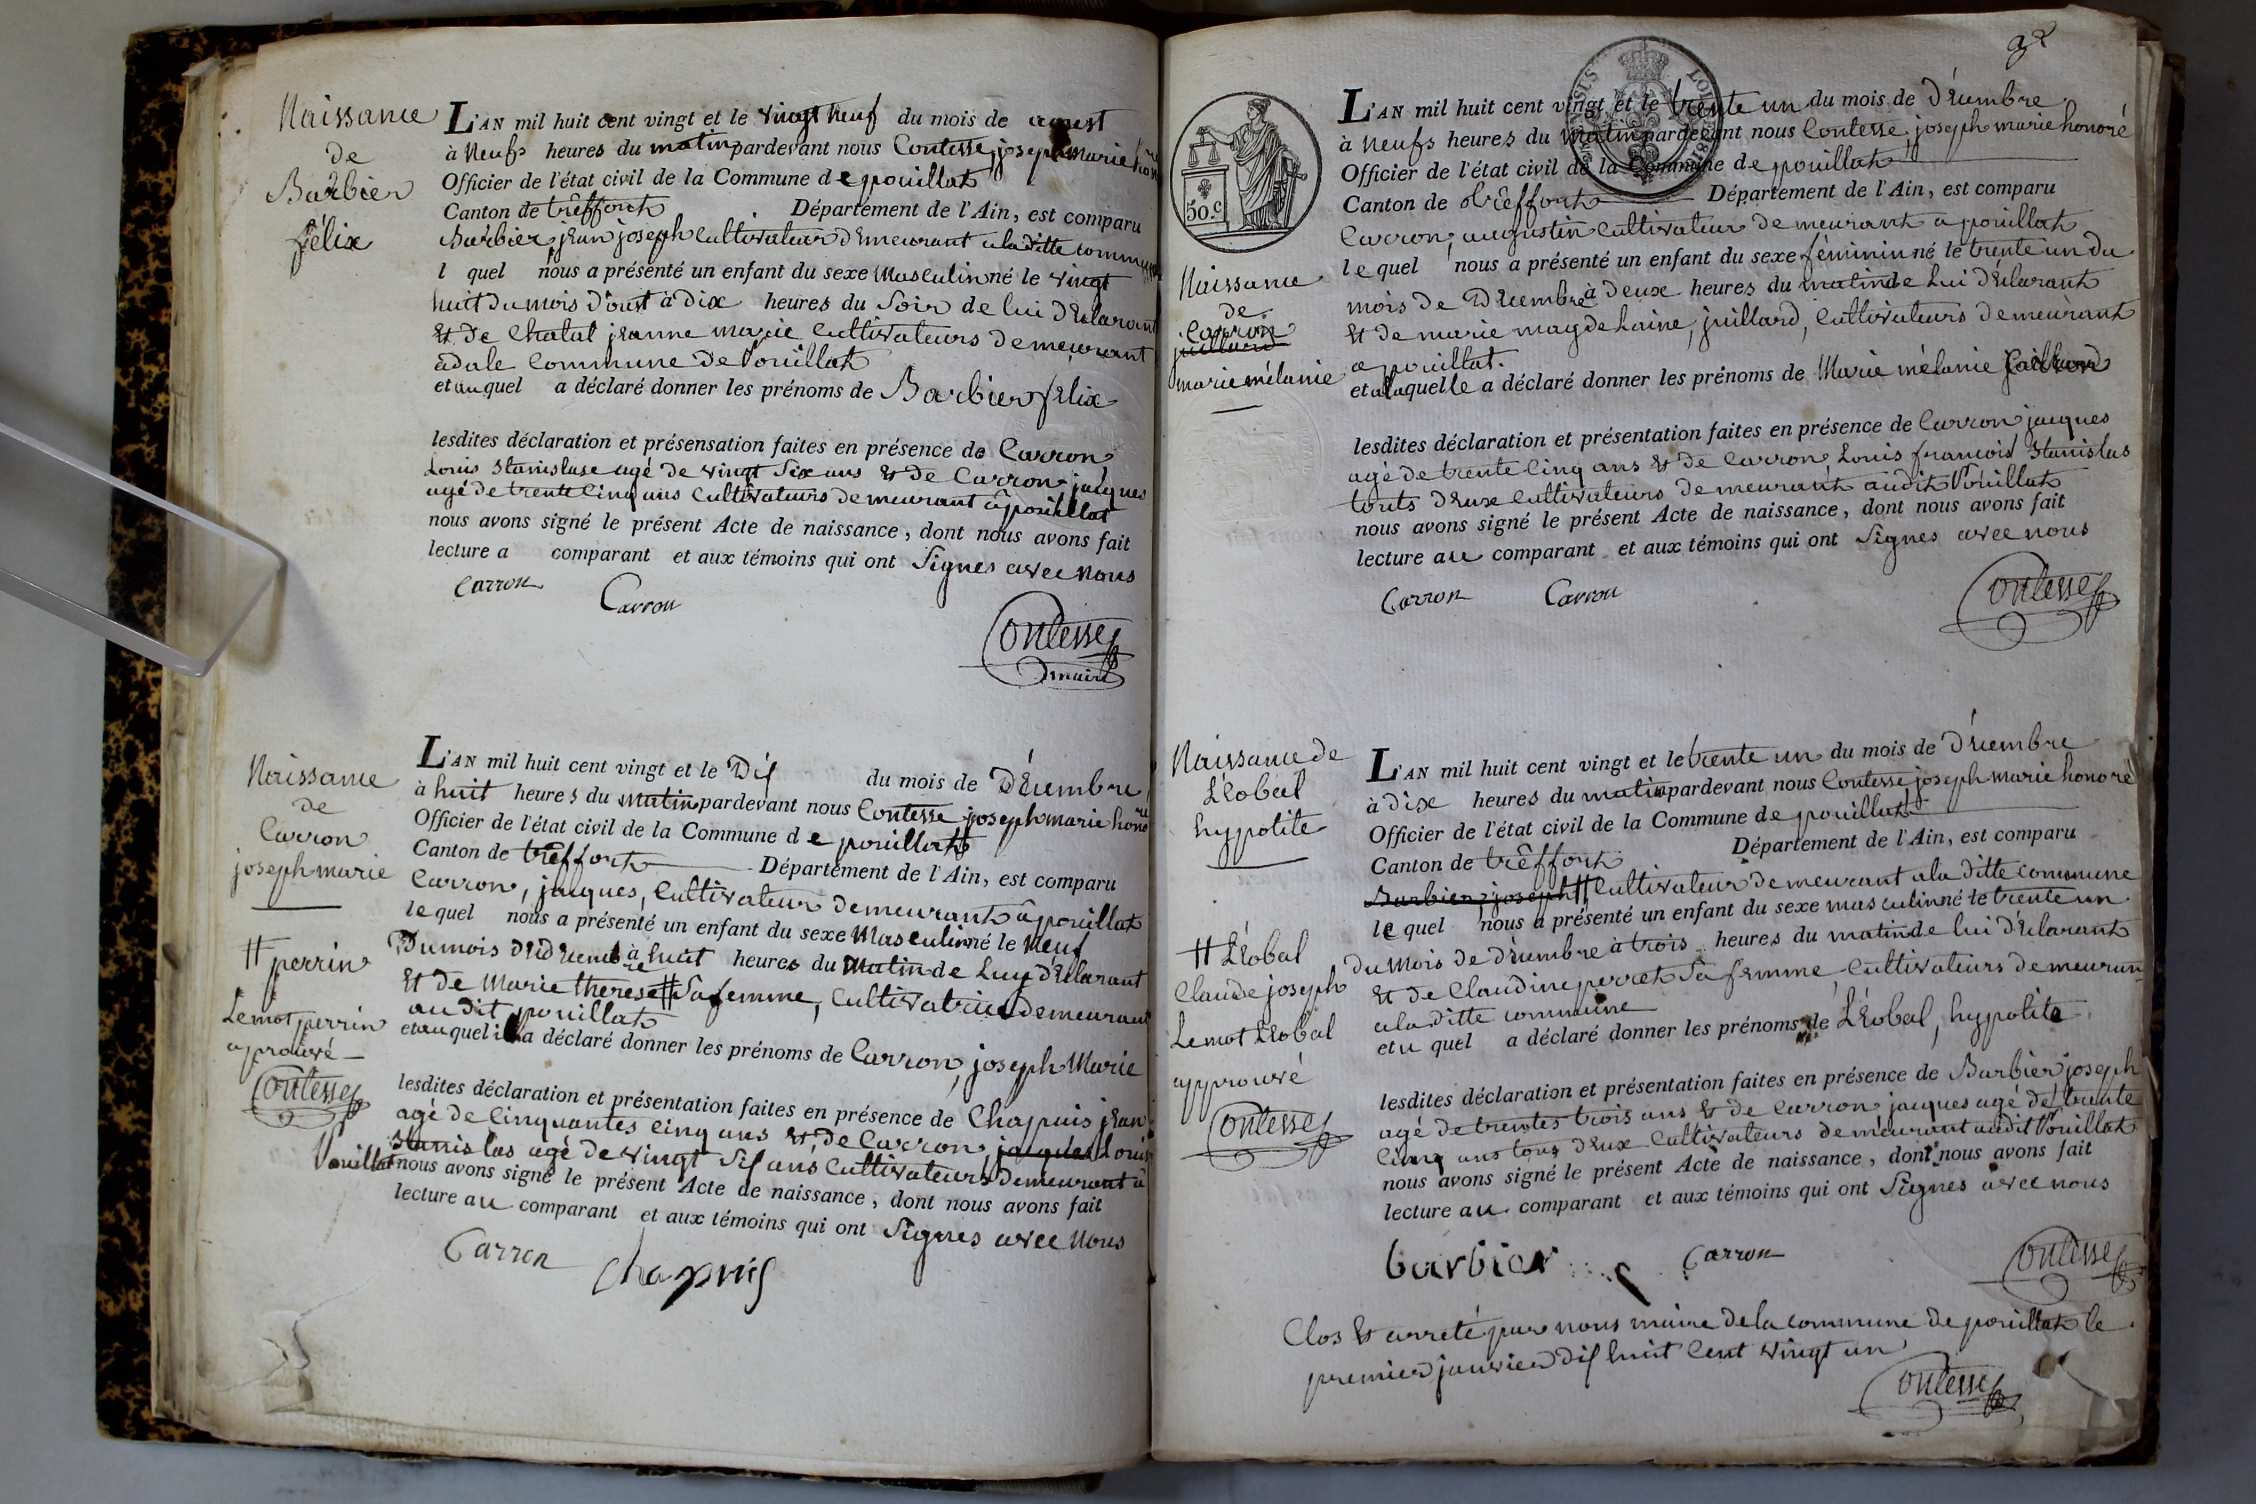 Naissance
de
Barbier
félix
L'AN mil huit cent vingt et le vingt neuf du mois de aoust
à Neufs heures du matin pardevant nous Contesse, joseph Marie hon
Officier de l'état civil de la Commune de pouillat
Canton de trêffort Département de l'Ain, est comparu
Barbier, jean joseph Cultivateur demeurant a la ditte commune
l quel nous a présenté un enfant du sexe Masculin né le vingt
huit du mois d'oust à dix heures du soir de lui déclarant
et de Chatal jeanne marie Cultivateurs demeurant
a dale Commune de Pouillat
et au quel a déclaré donner les prénoms de Barbier félix
lesdites déclaration et présensation faites en présence de Carron
Louis Stanislase agé de vingt Six ans et de Carron jacques
agé de trente Cinq ans Cultivateurs demeurant à pouillat
nous avons signé le présent Acte de naissance, dont nous avons fait
lecture a comparant et aux témoins qui ont Signés avec Nous
Carron Carron
Contesse
maire
Naissance
de
Carron
joseph marie
# perrin
Le mot perrin
aprouvé
Contesse
L'AN mil huit cent vingt et le Dis du mois de Décembre
à huit heures du matin pardevant nous Contesse joseph marie honoré
Officier de l'état civil de la Commune de pouillat
Canton de trêffort Département de l'Ain, est comparu
Carron, jacques, Cultivateur demeurant à pouillat
le quel nous a présenté un enfant du sexe Masculin né le neuf
Du mois de décembre à huit heures du Matin de Luy déclarant
Et de Marie therese # Sa femme, Cultivatrice demeurant
au dit pouillat
et au quel il a déclaré donner les prénoms de Carron, joseph Marie
lesdites déclaration et présentation faites en présence de Chapuis jean
agé de Cinquantes Cinq ans et de Carron, jacques Louis
Stanislas agé de vingt Sis ans Cultivateurs demeurant à
Pouillat nous avons signé le présent Acte de naissance, dont nous avons fait
lecture au comparant et aux témoins qui ont Signés avec Nous
Carron Chapuis
50.c
Naissance
de
Carron
juillard
marie mélanie
L'AN mil huit cent vingt et le trente un du mois de Décembre
à Neufs heures du matin pardevant nous Contesse, joseph marie honoré
Officier de l'état civil de la Commune de pouillat
Canton de trêffort Département de l'Ain, est comparu
Carron, augustin Cultivateur demeurant a pouillat
le quel nous a présenté un enfant du sexe féminin né le trente un du
mois de Décembre à deux heures du matin de Lui déclarant
et de marie magdelaine, juillard, Cultivateurs demeurant
a pouillat.
et a laquelle a déclaré donner les prénoms de Marie mélanie
lesdites déclaration et présentation faites en présence de Carron jacques
agé de trente Cinq ans et de Carron Louis francois Stanislas
touts deux Cultivateurs demeurant audit Pouillat
nous avons signé le présent Acte de naissance, dont nous avons fait
lecture au comparant et aux témoins qui ont Signes avec nous
Carron Carron
Contesse
Naissance de
Léobal
hypolite
# Léobal
Claude joseph
Le mot Léobal
approuvé
Contesse
L'AN mil huit cent vingt et le trente un du mois de Décembre
à Dix heures du matin pardevant nous Contesse joseph marie honoré
Officier de l'état civil de la Commune de pouillat
Canton de trêffort Département de l'Ain, est comparu
Barbier, joseph # Cultivateur demeurant a la ditte commune
le quel nous a présenté un enfant du sexe masculin né le trente un
du Mois de décembre à trois heures du matin de lui déclarant
et de Claudine perret Sa femme Cultivateurs demeuran
a la ditte commune
et u quel a déclaré donner les prénoms de Léobal, hypolite
lesdites déclaration et présentation faites en présence de Barbier joseph
agé de trentes trois ans et de Carron jacques agé de trente
Cinq ans tous deux Cultivateurs demeurant audit Pouillat
nous avons signé le présent Acte de naissance, dont nous avons fait
lecture au comparant et aux témoins qui ont Signes avec nous
barbier Carron
Contesse
Clos et arreté par nous maire de la commune de pouillat le
premier janvier dis huit Cent vingt un
Contesse